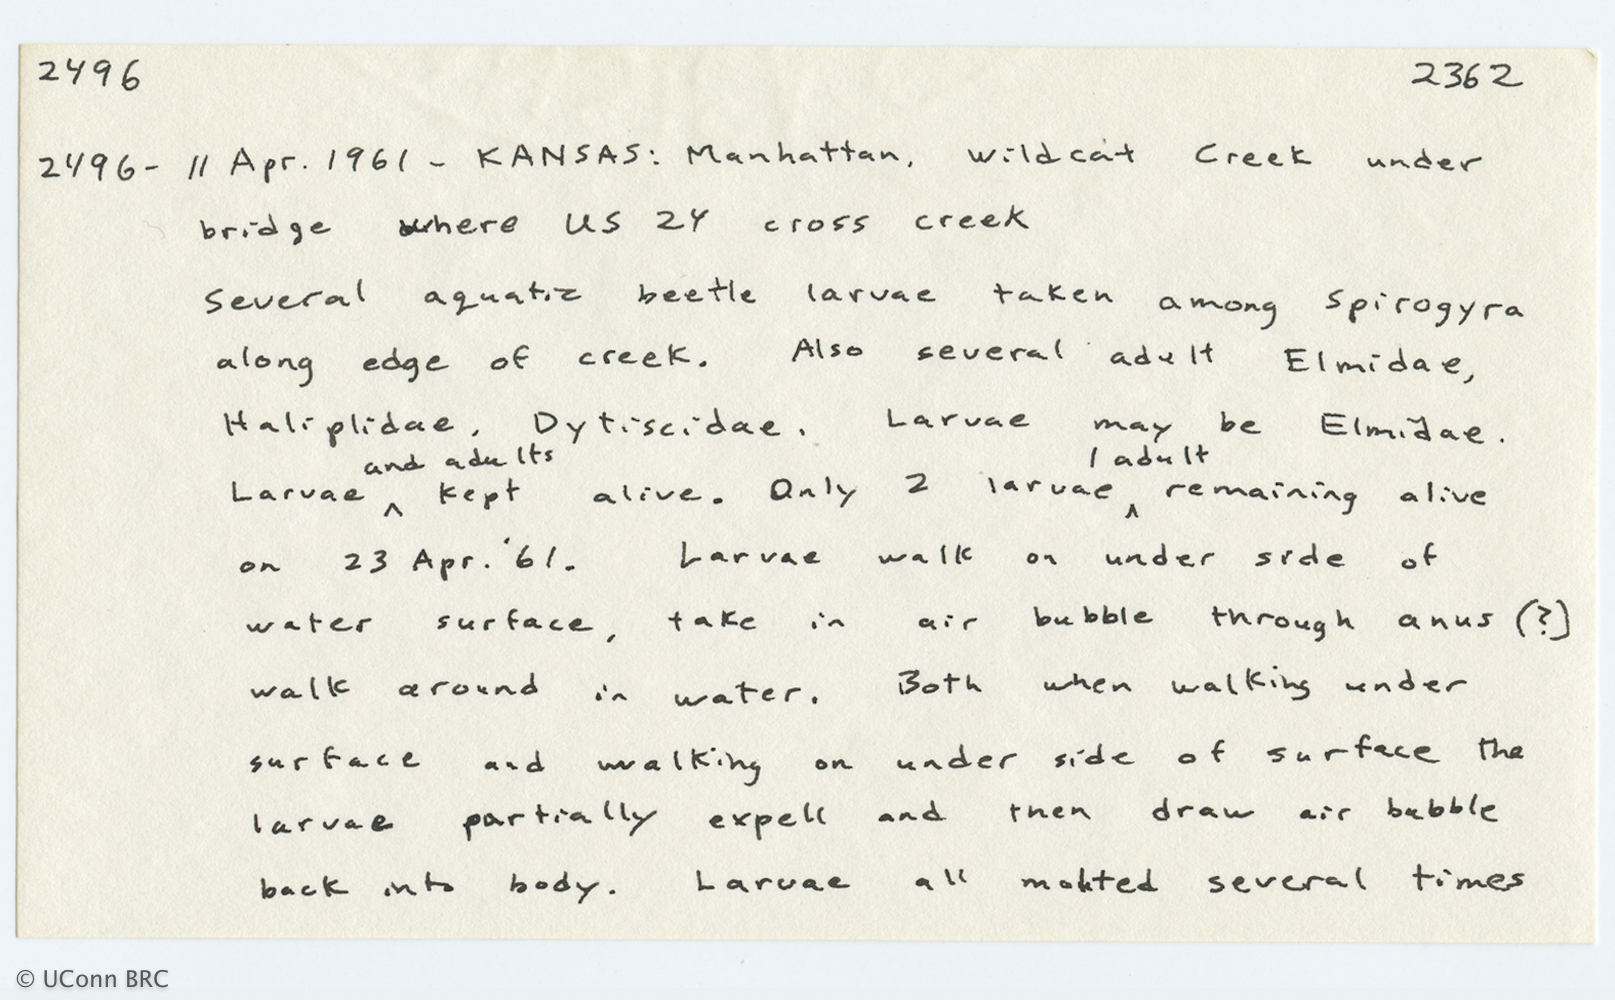 2496 2362
2496- 11 Apr. 1961 - KANSAS: Manhattan, Wildcat Creek under
bridge where US 24 cross creek
Several aquatic beetle larvae taken among Spirogyra
along edge of creek. Also several adult Elmidae,
Haliplidae, Dytiscidae. Larvae may be Elmidae.
and adults 1 adult
Larvae ^ kept alive. Only 2 larvae ^ remaining alive
on 23 Apr. '61. Larvae walk on under side of
water surface, take in air bubble through anus (?)
walk around in water. Both when walking under
surface and walking on under side of surface the
larvae partially expell and then draw air bubble
back into body. Larvae all molted several times
© UConn BRC